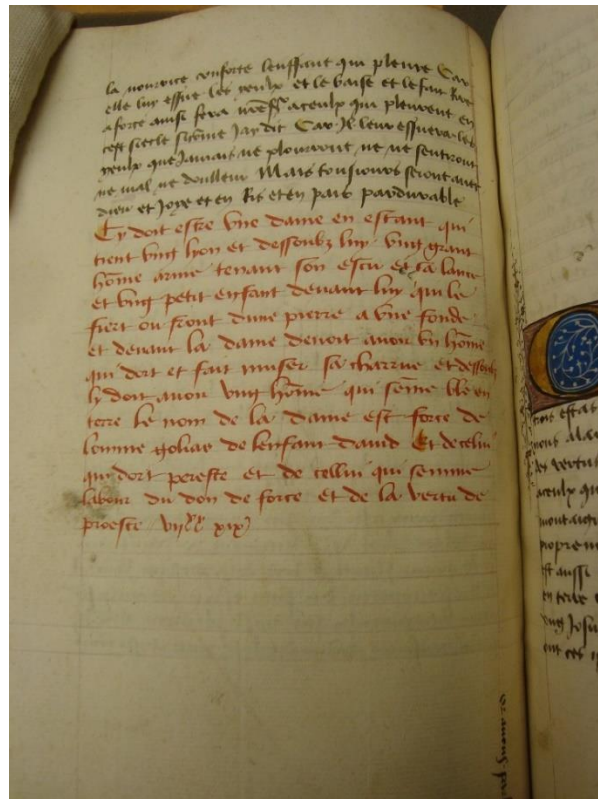 la nourrice conforte lenffant qui pleure Car
elle luy essue les yeulx et le baise et le fait Rire
a force ainsi fera aceulx qui pleurent en
cest siecle sicōme Jay dit Car Il leur essuera les
yeulx que Jamais ne plourront ne ne sentiront
ne mal ne doulleur Mais tousiours seront avec
dieu et Joye et en Ris et en paix pardurable
Cy doit estre vne dame en estant qui
tient vng lyon et dessoubz luy vng grant
hōme arme tenant son escu et sa lance
et vng petit enfant deuant luy qui le
fiert ou front dune pierre a vne fonde
et deuant la dame deuoit auoir vn hōme
qui dort et fait muser sa charrue et dessoubz
ly doit auoir vng hōme qui sēme ble en
terre Le nom de la dame est force de
lomme golias de lenfant dauid Et de celui
qui dort peresse et de cellui qui semme
labour du don de force et de la vertu de
proesce xix
nous alas
les vertus
aceulx qui
montaig
propreme
est aussi
en terre